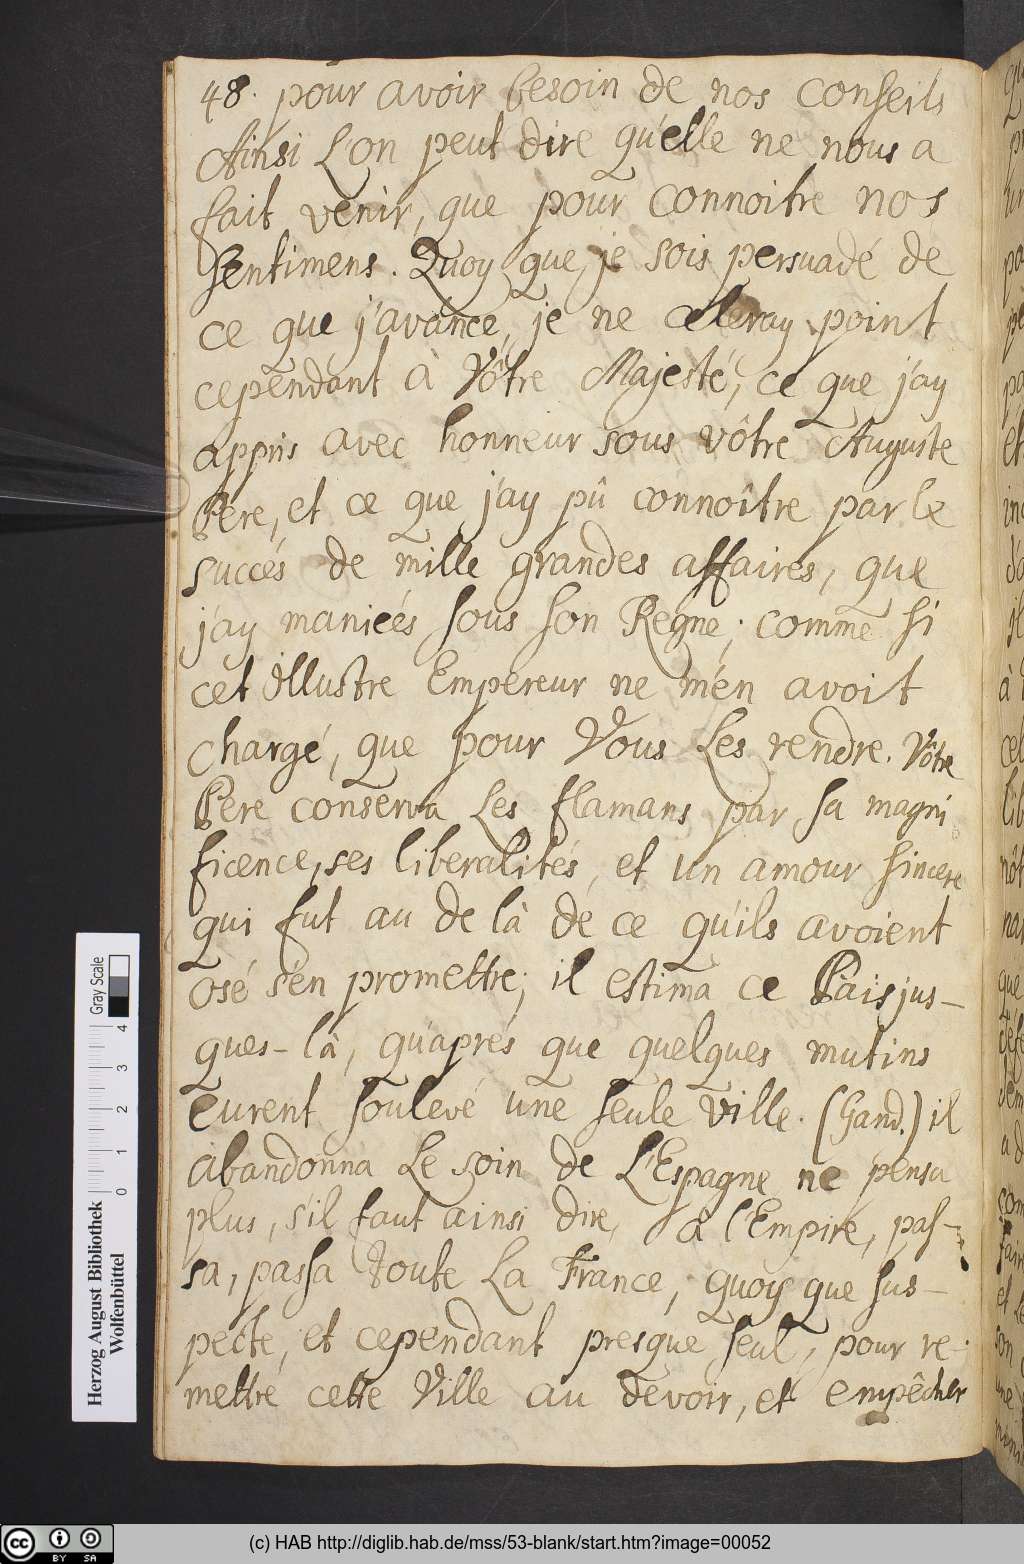 48. pour avoir besoin de nos conseils
Ainsi L'on peut dire qu'elle ne nous a
fait venir, que pour connoitre nos
sentimens. Quoy que je sois persuadé de
ce que j'avance, je ne celeray point
cependant à Vôtre Majesté, ce que j'ay
appris avec honneur sous vôtre Auguste
Pere, et ce que j'ay pû connoître par le
succés de mille grandes affaires, que
j'ay maniéés sous son Regne; comme si
cet illustre Empereur ne m'en avoit
chargé, que pour Vous Les rendre. Vôtre
Pere conserva Les flamans par sa magni
ficence, ses liberalités, et un amour sincere
qui fut au de là de ce qu'ils avoient
osé s'en promettre; il estima ce Païs jus-
ques-là, qu'aprés que quelques mutins
eurent soulevé une seule ville. (Gand.) il
abandonna Le soin de L'Espagne ne pensa
plus, s'il faut ainsi dire, à l'Empire, pas-
sa, passa toute La France, quoy que sus-
pecte, et cependant presque seul, pour re-
mettre cette Ville au devoir, et empêcher
Gray Scale
0 1 2 3 4
Herzog August Bibliothek
Wolfenbüttel
cc BY SA
(c) HAB http://diglib.hab.de/mss/53-blank/start.htm?image=00052